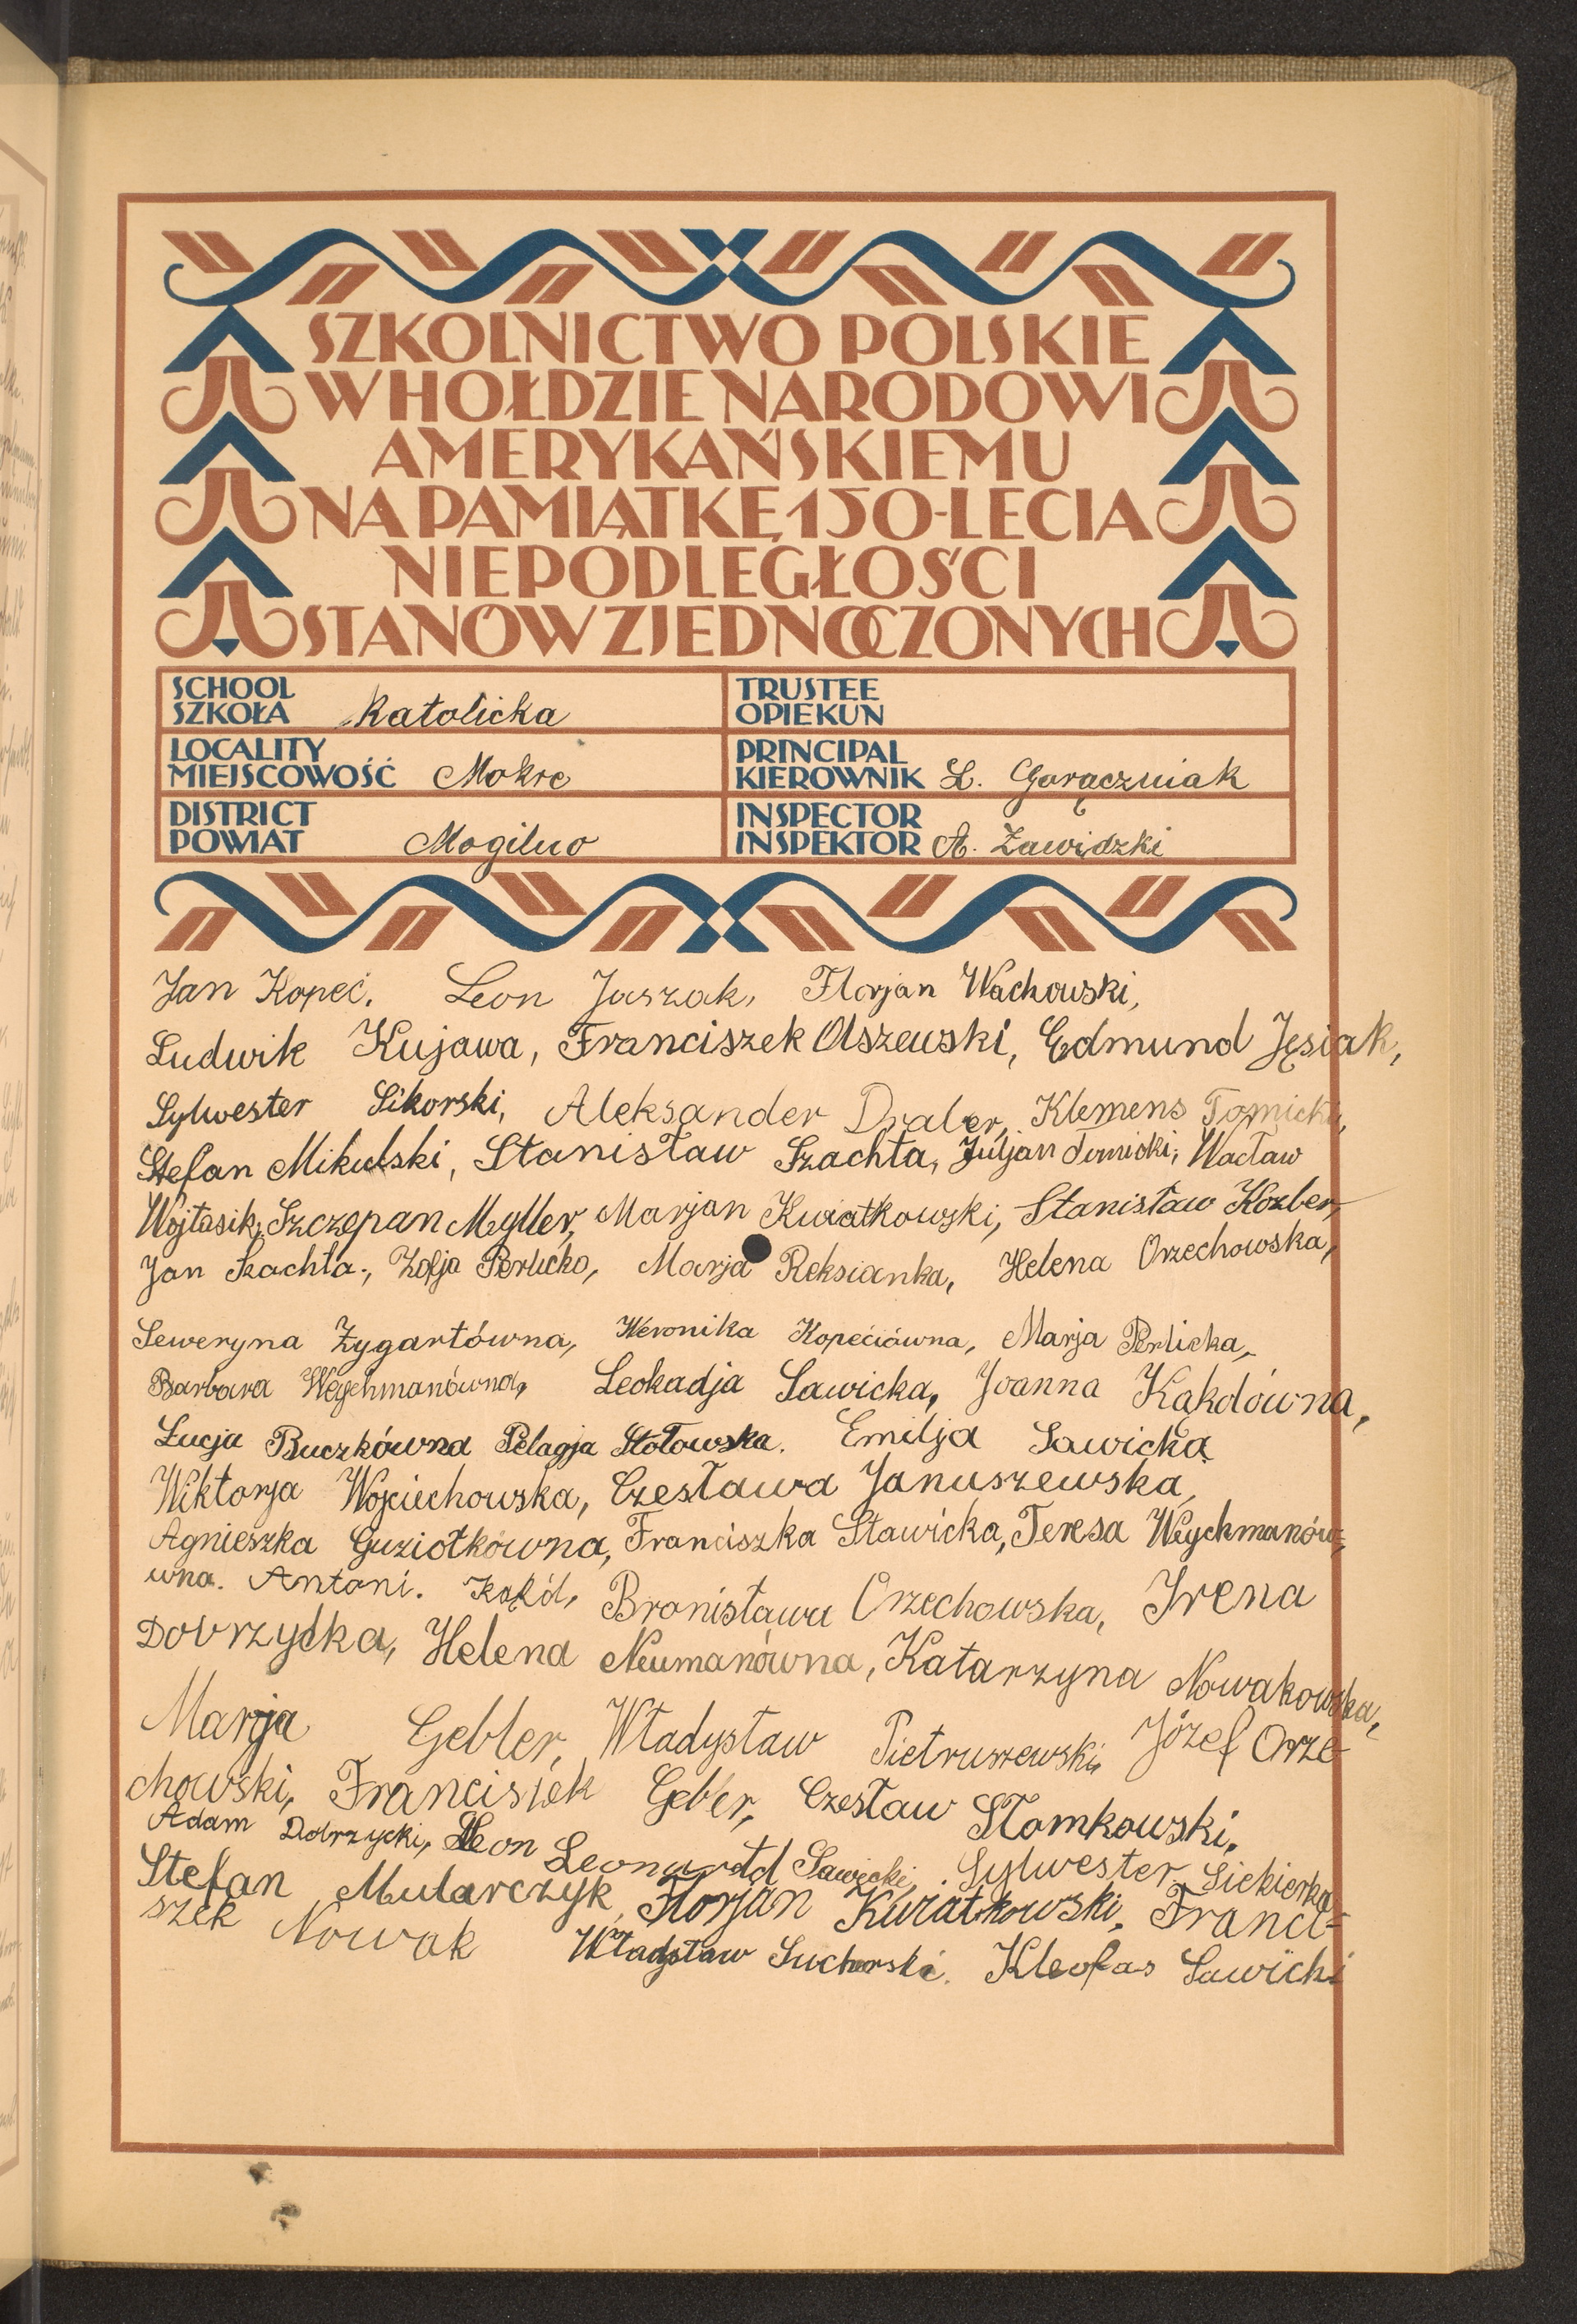 SZKOLNICTWO POLSKIE
W HOŁDZIE NARODOWI
AMERYKAŃSKIEMU
NA PAMIĄTKĘ 150-LECIA
NIEPODLEGŁOŚCI
STANÓW ZJEDNOCZONYCH
SCHOOL
SZKOŁA Katolicka
TRUSTEE
OPIEKUN
LOCALITY
MIEJSCOWOŚĆ Mokre
PRINCIPAL
KIEROWNIK L. Gorączniak
DISTRICT
POWIAT Mogilno
INSPECTOR
INSPEKTOR A. Zawidzki
Jan Kopeć, Leon Jaszak, Florjan Wachowski,
Ludwik Kujawa, Franciszek Olszewski, Edmund Jęsiak,
Sylwester Sikorski, Aleksander Draber, Klemens Tomicki,
Stefan Mikulski, Stanisław Szachta, Juljan Tomicki, Wacław
Wojtasik, Szczepan Myller, Marjan Kwiatkowski, Stanisław Kozber,
Jan Szachta, Zofja Perlicka, Marja Reksianka, Helena Orzechowska,
Seweryna Zygartówna, Weronika Kopećiówna, Marja Perlicka,
Barbara Weychmanówna, Leokadja Sawicka, Joanna Kąkolówna,
Łucja Buczkówna Pelagja Stołowska. Emilja Sawicka
Wiktorja Wojciechowska, Czesława Januszewska,
Agnieszka Guziołkówna, Franciszka Sławicka, Teresa Weychmanów-
wna. Antoni. Kąkól, Bronisława Orzechowska, Irena
Dobrzycka, Helena Neumanówna, Katarzyna Nowakowska,
Marja Gebler, Władysław Pietruszewski, Józef Orze
chowski, Francisiek Gebler, Czesław Słomkowski,
Adam Dobrzycki, Leon Leonard Sawicki, Sylwester Siekierka
Stefan Mularczyk, Florjan Kwiatkowski, Franci=
szek Nowak Władysław Sucharski. Kleofas Sawicki